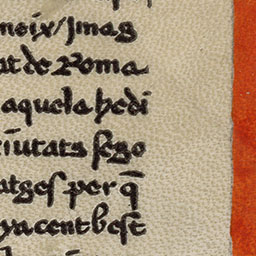 neix/Jmag
at de Roma
aquela hedi
ciutats sego
atges per q̄
ya cent best